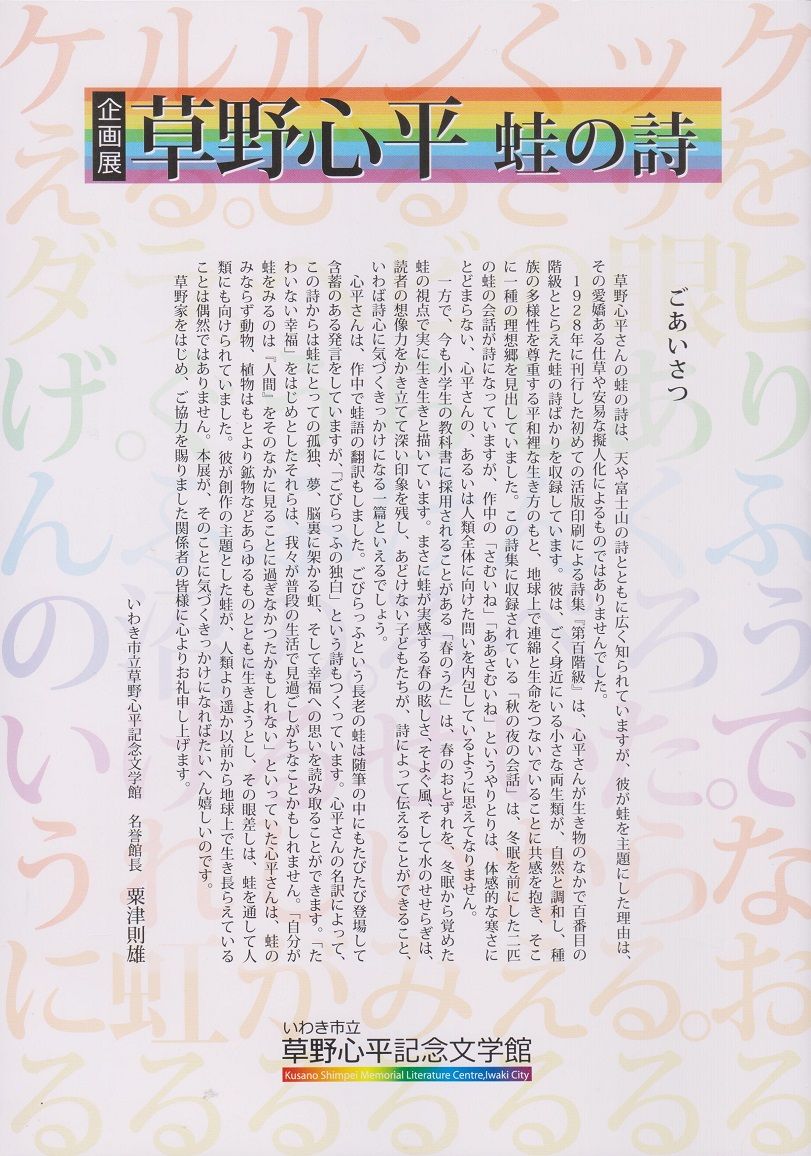 企画展
草野心平 蛙の詩
ごあいさつ
草野心平さんの蛙の詩は、天や富士山の詩とともに広く知られていますが、彼が蛙を主題にした理由は、
その愛嬌ある仕草や安易な擬人化によるものではありませんでした。
1928年に刊行した初めての活版印刷による詩集『第百階級』は、心平さんが生き物のなかで百番目の
階級ととらえた蛙の詩ばかりを収録しています。彼は、ごく身近にいる小さな両生類が、自然と調和し、種
族の多様性を尊重する平和裡な生き方のもと、地球上で連綿と生命をつないでいることに共感を抱き、そこ
に一種の理想郷を見出していました。この詩集に収録されている「秋の夜の会話」は、冬眠を前にした二匹
の蛙の会話が詩になっていますが、作中の「さむいね」「ああさむいね」というやりとりは、体感的な寒さに
とどまらない、心平さんの、あるいは人類全体に向けた問いを内包しているように思えてなりません。
一方で、今も小学生の教科書に採用されることがある「春のうた」は、春のおとずれを、冬眠から覚めた
蛙の視点で実に生き生きと描いています。まさに蛙が実感する春の眩しさ、そよぐ風、そして水のせせらぎは、
読者の想像力をかき立てて深い印象を残し、あどけない子どもたちが、詩によって伝えることができること、
いわば詩心に気づくきっかけになる一篇といえるでしょう。
心平さんは、作中で蛙語の翻訳もしました。ごびらっふという長老の蛙は随筆の中にもたびたび登場して
含蓄のある発言をしていますが、「ごびらっふの独白」という詩もつくっています。心平さんの名訳によって、
この詩からは蛙にとっての孤独、夢、脳裏に架かる虹、そして幸福への思いを読み取ることができます。「た
わいない幸福」をはじめとしたそれらは、我々が普段の生活で見過ごしがちなことかもしれません。「自分が
蛙をみるのは『人間』をそのなかに見ることに過ぎなかつたかもしれない」といっていた心平さんは、蛙の
みならず動物、植物はもとより鉱物などあらゆるものとともに生きようとし、その眼差しは、蛙を通して人
類にも向けられていました。彼が創作の主題とした蛙が、人類より遥か以前から地球上で生き長らえている
ことは偶然ではありません。本展が、そのことに気づくきっかけになればたいへん嬉しいのです。
草野家をはじめ、ご協力を賜りました関係者の皆様に心よりお礼申し上げます。
いわき市立草野心平記念文学館 名誉館長 粟津則雄
いわき市立
草野心平記念文学館
Kusano Shimpei Memorial Literature Centre,Iwaki City